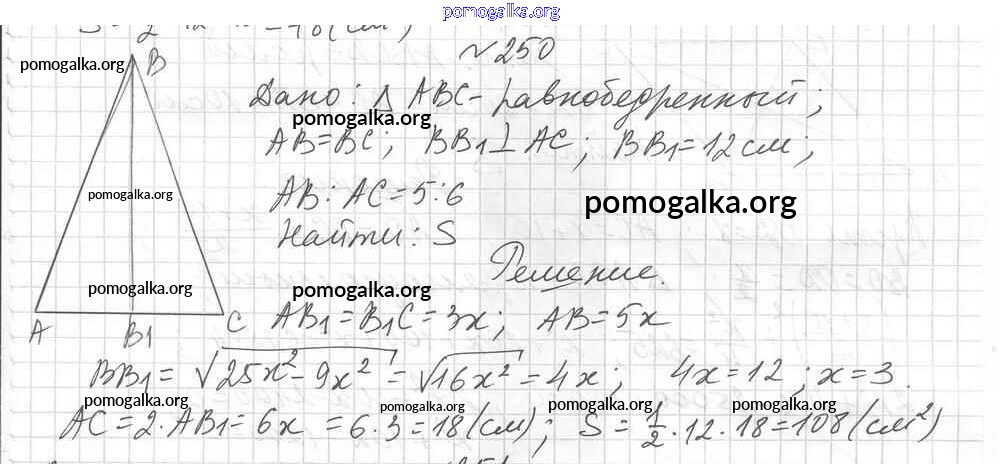 pomogalka.org
№250
pomogalka.org
B
Дано: △ ABC - равнобедренный;
pomogalka.org
AB=BC; BB1⊥AC; BB1=12см;
pomogalka.org
AB:AC=5:6
pomogalka.org
Найти: S
Решение.
pomogalka.org
pomogalka.org
A B1 C
AB1=B1C=3x; AB=5x
BB1=√25x²-9x²=√16x²=4x; 4x=12; x=3.
pomogalka.org pomogalka.org pomogalka.org pomogalka.org
AC=2·AB1=6x=6·3=18(см); S=1/2·12·18=108(см²)